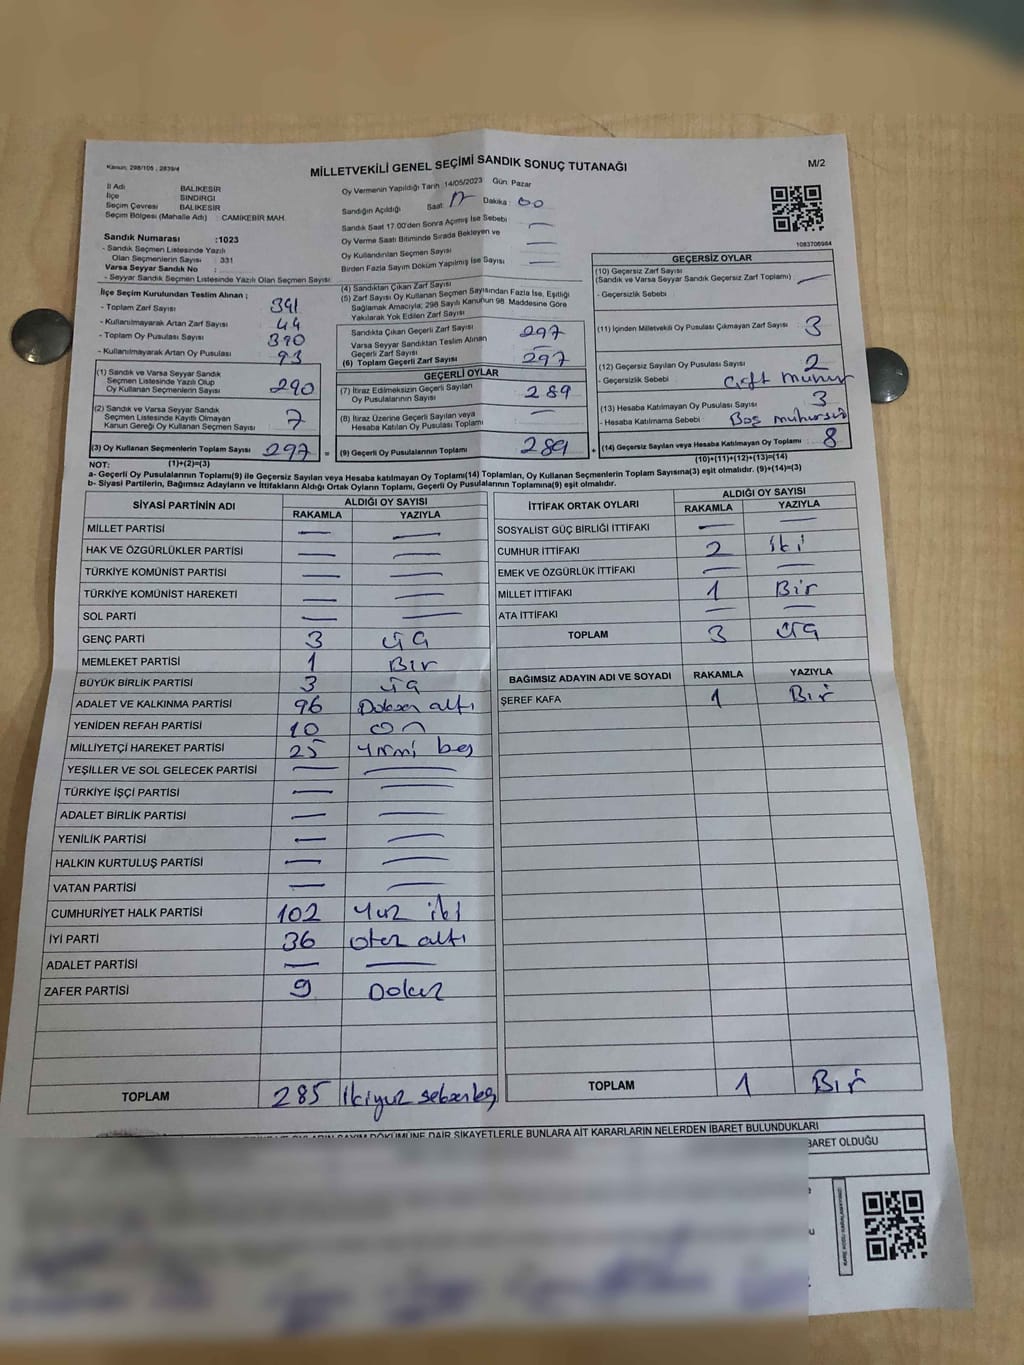 Kanun: 298/105 , 2839/4
MİLLETVEKİLİ GENEL SEÇİMİ SANDIK SONUÇ TUTANAĞI
M/2
İl Adı BALIKESİR
İlçe SINDIRGI
Seçim Çevresi BALIKESİR
Seçim Bölgesi (Mahalle Adı) : CAMİKEBİR MAH.
Sandık Numarası :1023
- Sandık Seçmen Listesinde Yazılı
Olan Seçmenlerin Sayısı : 331
Varsa Seyyar Sandık No :
- Seyyar Sandık Seçmen Listesinde Yazılı Olan Seçmen Sayısı
Oy Vermenin Yapıldığı Tarih 14/05/2023 Gün: Pazar
Sandığın Açıldığı Saat: 17 Dakika: 00
Sandık Saat 17.00'den Sonra Açımış İse Sebebi —
Oy Verme Saati Bitiminde Sırada Bekleyen ve
Oy Kullandırılan Seçmen Sayısı —
Birden Fazla Sayım Döküm Yapılmış İse Sayısı —
1083706984
İlçe Seçim Kurulundan Teslim Alınan ;
- Toplam Zarf Sayısı : 341
- Kullanılmayarak Artan Zarf Sayısı : 44
- Toplam Oy Pusulası Sayısı : 390
- Kullanılmayarak Artan Oy Pusulası : 93
(1) Sandık ve Varsa Seyyar Sandık
Seçmen Listesinde Yazılı Olup
Oy Kullanan Seçmenlerin Sayısı : 290
(2) Sandık ve Varsa Seyyar Sandık
Seçmen Listesinde Kayıtlı Olmayan
Kanun Gereği Oy Kullanan Seçmen Sayısı : 7
(3) Oy Kullanan Seçmenlerin Toplam Sayısı : 297
(1)+(2)=(3)
(4) Sandıktan Çıkan Zarf Sayısı
(5) Zarf Sayısı Oy Kullanan Seçmen Sayısından Fazla İse, Eşitliği
Sağlamak Amacıyla; 298 Sayılı Kanunun 98. Maddesine Göre
Yakılarak Yok Edilen Zarf Sayısı
Sandıkta Çıkan Geçerli Zarf Sayısı 297
Varsa Seyyar Sandıktan Teslim Alınan
Geçerli Zarf Sayısı —
(6) Toplam Geçerli Zarf Sayısı 297
GEÇERLİ OYLAR
(7) İtiraz Edilmeksizin Geçerli Sayılan
Oy Pusulalarının Sayısı : 289
(8) İtiraz Üzerine Geçerli Sayılan veya
Hesaba Katılan Oy Pusulası Toplamı : —
= (9) Geçerli Oy Pusulalarının Toplamı 289
GEÇERSİZ OYLAR
(10) Geçersiz Zarf Sayısı
(Sandık ve Varsa Seyyar Sandık Geçersiz Zarf Toplamı) : —
- Geçersizlik Sebebi :
(11) İçinden Milletvekili Oy Pusulası Çıkmayan Zarf Sayısı : 3
(12) Geçersiz Sayılan Oy Pusulası Sayısı : 2
- Geçersizlik Sebebi : Çift mühür
(13) Hesaba Katılmayan Oy Pusulası Sayısı : 3
- Hesaba Katılmama Sebebi : Boş mühürsüz
+ (14) Geçersiz Sayılan veya Hesaba Katılmayan Oy Toplamı : 8
(10)+(11)+(12)+(13)=(14)
NOT:
a- Geçerli Oy Pusulalarının Toplamı(9) ile Geçersiz Sayılan veya Hesaba katılmayan Oy Toplamı(14) Toplamları, Oy Kullanan Seçmenlerin Toplam Sayısına(3) eşit olmalıdır. (9)+(14)=(3)
b- Siyasi Partilerin, Bağımsız Adayların ve İttifakların Aldığı Ortak Oyların Toplamı, Geçerli Oy Pusulalarının Toplamına(9) eşit olmalıdır.
SİYASİ PARTİNİN ADI ALDIĞI OY SAYISI
RAKAMLA YAZIYLA
MİLLET PARTİSİ — —
HAK VE ÖZGÜRLÜKLER PARTİSİ — —
TÜRKİYE KOMÜNİST PARTİSİ — —
TÜRKİYE KOMÜNİST HAREKETİ — —
SOL PARTİ — —
GENÇ PARTİ 3 üç
MEMLEKET PARTİSİ 1 Bir
BÜYÜK BİRLİK PARTİSİ 3 üç
ADALET VE KALKINMA PARTİSİ 96 Doksan altı
YENİDEN REFAH PARTİSİ 10 on
MİLLİYETÇİ HAREKET PARTİSİ 25 yirmi beş
YEŞİLLER VE SOL GELECEK PARTİSİ — —
TÜRKİYE İŞÇİ PARTİSİ — —
ADALET BİRLİK PARTİSİ — —
YENİLİK PARTİSİ — —
HALKIN KURTULUŞ PARTİSİ — —
VATAN PARTİSİ — —
CUMHURİYET HALK PARTİSİ 102 Yüz iki
İYİ PARTİ 36 otuz altı
ADALET PARTİSİ — —
ZAFER PARTİSİ 9 Dokuz
TOPLAM 285 İkiyüz seksenbeş
İTTİFAK ORTAK OYLARI ALDIĞI OY SAYISI
RAKAMLA YAZIYLA
SOSYALİST GÜÇ BİRLİĞİ İTTİFAKI — —
CUMHUR İTTİFAKI 2 iki
EMEK VE ÖZGÜRLÜK İTTİFAKI — —
MİLLET İTTİFAKI 1 Bir
ATA İTTİFAKI — —
TOPLAM 3 üç
BAĞIMSIZ ADAYIN ADI VE SOYADI RAKAMLA YAZIYLA
ŞEREF KAFA 1 Bir
TOPLAM 1 Bir
SAYIM DÖKÜMÜNE DAİR ŞİKAYETLERLE BUNLARA AİT KARARLARIN NELERDEN İBARET BULUNDUKLARI
İBARET OLDUĞU